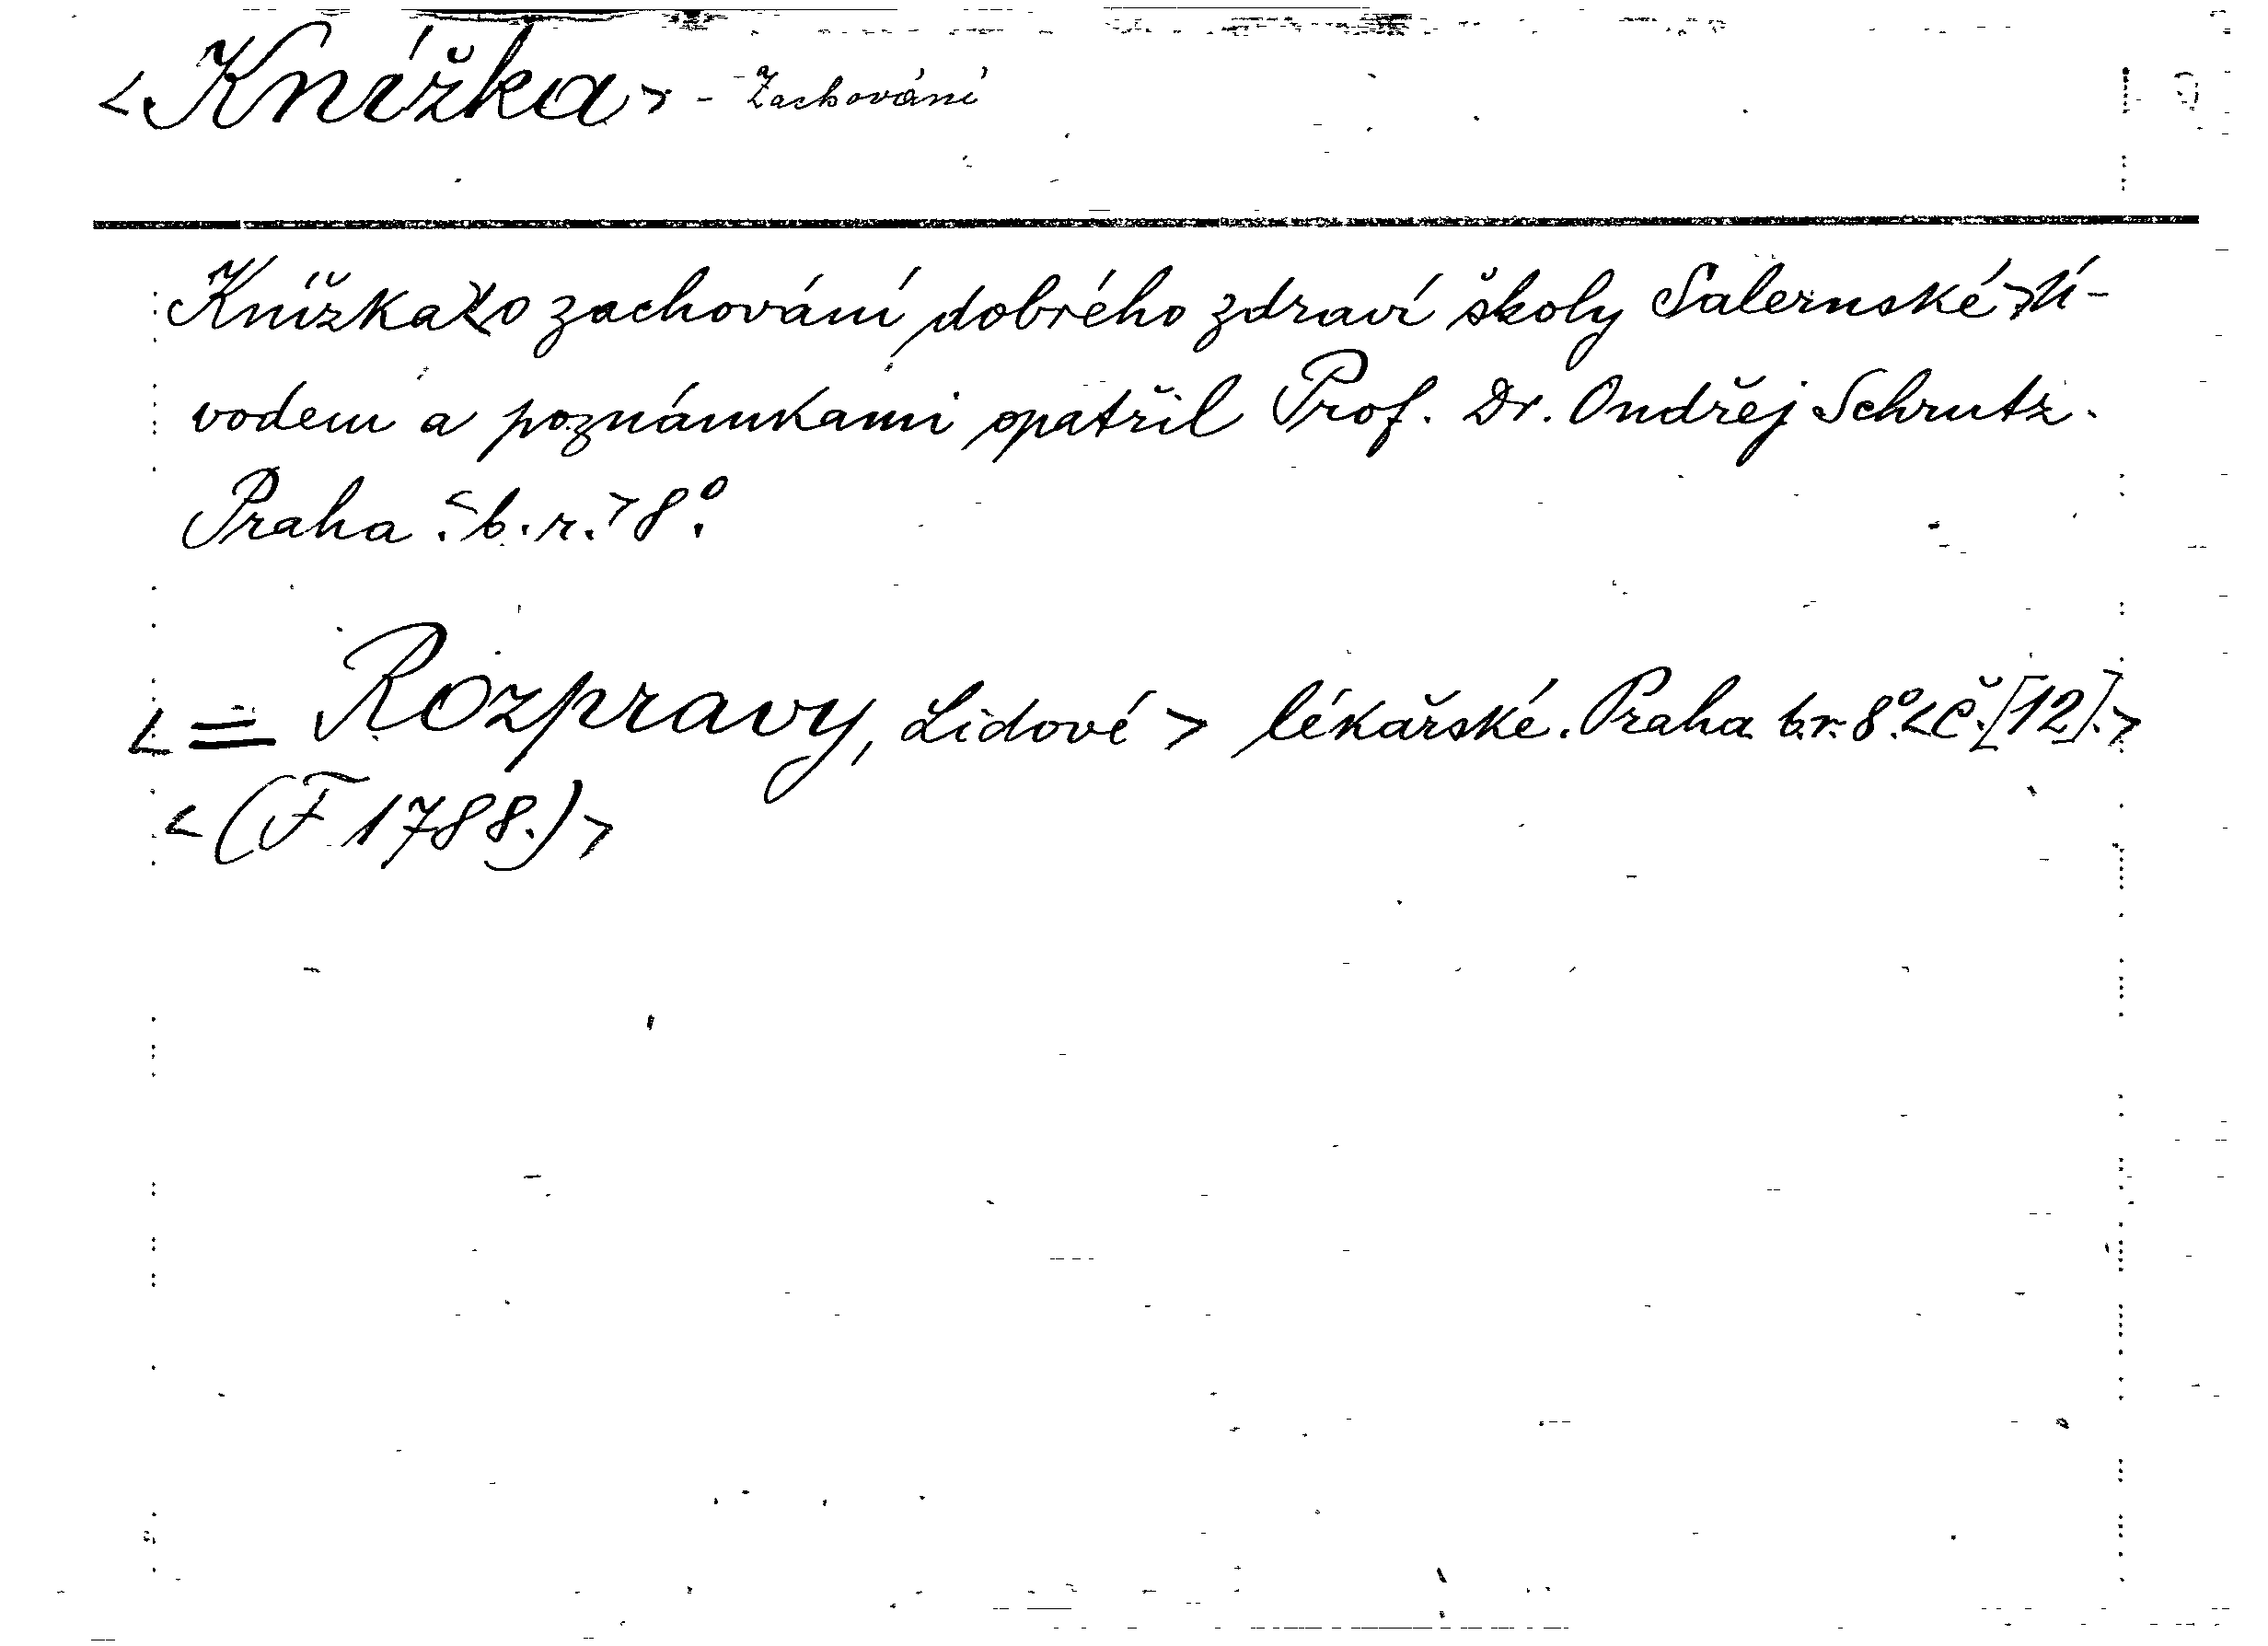 <Knížka> - Zachování
Knížka <o zachování dobrého zdraví školy Salernské> Ú-
vodem a poznámkami opatřil Prof. Dr. Ondřej Schrutz.
Praha. <b. r.> 8°.
<= Rozpravy, Lidové > lékařské. Praha b.r. 8°. <Č. [12].>
<(F 1788.)>